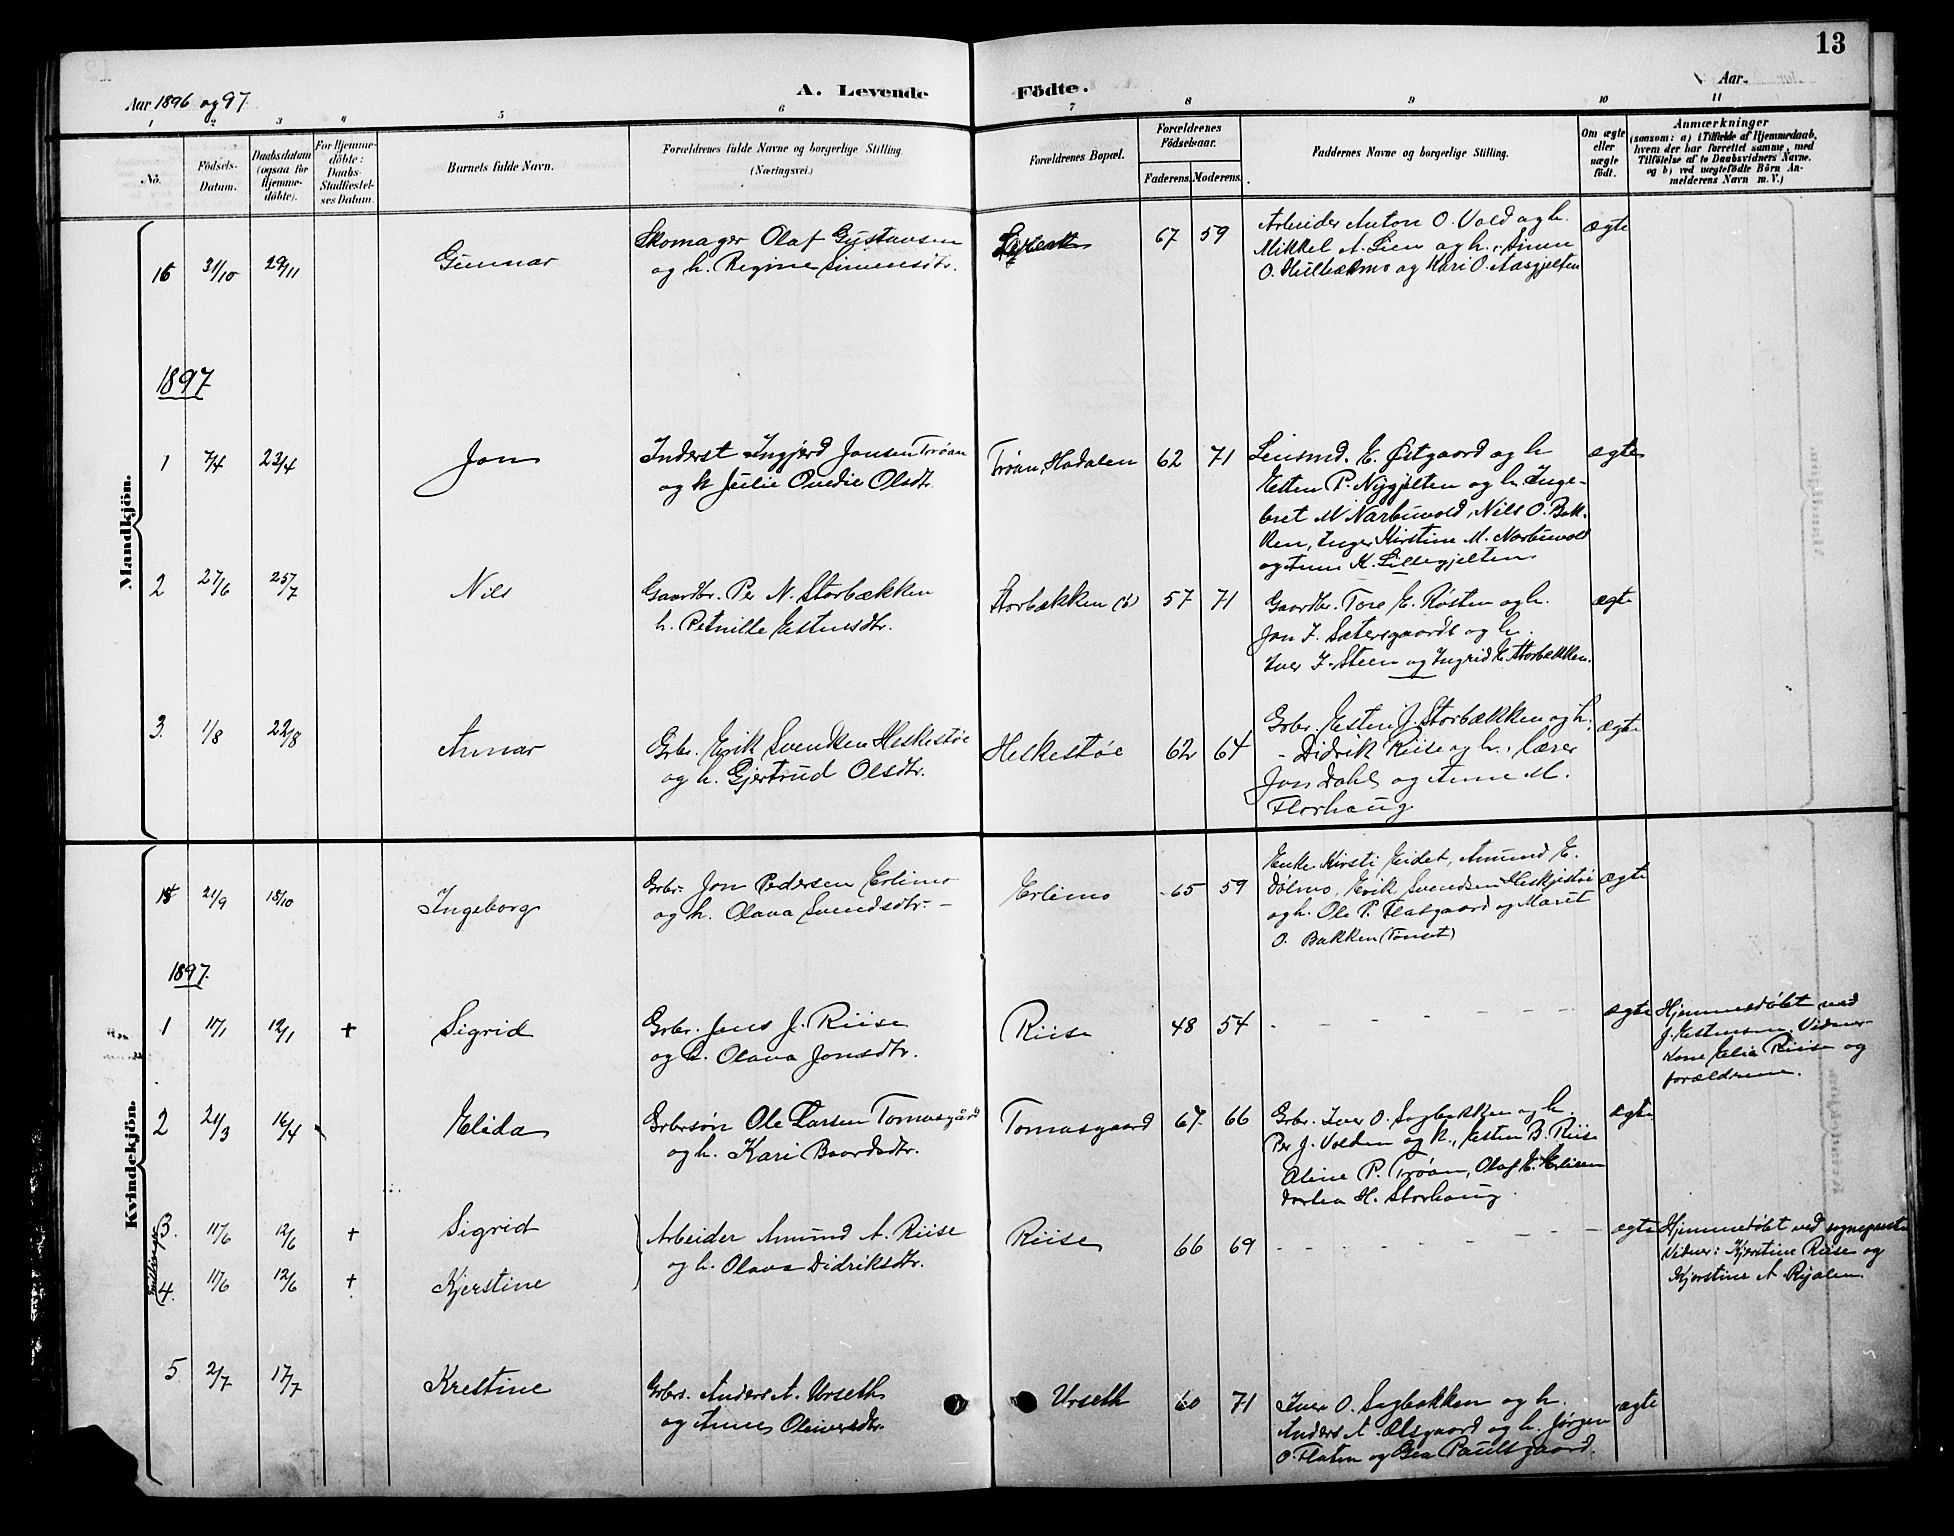 13
Aar 1896 og 97.
A. Levende Födte.
Aar
1 2 3 4 5 6 7 8 9 10 11
No.
Födsels-
Datum.
Daabsdatum
(ogsaa for
Hjemme-
döbte).
For Hjemme-
döbte:
Daabs-
Stadfæstel-
ses Datum.
Barnets fulde Navn.
Forældrenes fulde Navne og borgerlige Stilling.
(Næringsvei.)
Forældrenes Bopæl.
Forældrenes
Födselsaar.
Faderens. Moderens.
Faddernes Navne og borgerlige Stilling.
Om ægte
eller
uægte
født.
Anmærkninger
(saasom: a) i Tilfælde af Hjemmedaab,
hvem der har forrettet samme, med
Tilföielse af to Daabsvidners Navne.
og b) ved uægtefödte Börn An-
melderens Navn m. V.)
Mandkjön.
16 31/10 29/11 Gunnar
Skomager Olaf Gustavsen
og h. Regine Simensdtr.
67 59
Arbeider Anton O. Vold og h.
Mikkel A. Lien og h., Simen
O. Hulbækmo og Kari O. Aasgjelten
ægte
1897
1 7/4 23/4 Jon
Inderst Ingjerd Jonsen Trøan
og h Julie Ondie Olsdt.
Trøan, Hodalen 62 71
Lensmd. E. Østgaard og h
Esten P. Nygjelten og h. Inge-
bret M Narbuvold, Nils O. Bak-
ken, Inger Kirstine M. Narbuvold
og Anne K. Lillegjelten
ægte
2 27/6 25/7 Nils
Gaardbr. Per N. Storbækken
h. Petnille Estensdtr.
Storbækken (b) 57 71
Gaardbr. Tore E. Røsten og h.
Jon J. Sætersgaarde og h.
Iver J. Steen og Ingrid E. Storbækken.
ægte
3. 1/8 22/8 Annar
Grbr. Erik Svendsen Heskestøe
og h. Gjertrud Olsdtr.
Heskestøe 62 64
Grbr. Esten J. Storbækken og h.
- Didrik Riise og h., lærer
Jon Dahl og Anne M.
Florhaug
ægte
Kvindekjön.
15 21/9 18/10 Ingeborg
Grbr. Jon Pedersen Erlimo
og h. Olava Svendsdtr. -
Erlimo 65 59
Enke Kirsti Eidet, Amund E.
Dølmo, Erik Svendsen Heskjestøe
og h. Ole P. Flatgaard og Marit
O. Bakken (Tønset)
ægte
1897.
1 11/1 12/1 + Sigrid
Grbr. Jens J. Riise
og h. Olava Jonsdtr.
Riise 48 54
- - - - - - -
ægte
Hjemmedøbt ved
J. Estensen. Vidner
Kone Elia Riise og
forældrene.
2 21/3 16/4 Elida
Grbrsøn Ole Larsen Tomasgård
og h. Kari Baardsdtr.
Tomasgaard 67 66
Grbr. Iver O. Sagbakken og h.
Per J. Volden og h., Esten B. Riise
Oline P. Trøan, Olaf E. Erlien
Dortea H. Storhaug.
ægte
Tvillinger
3. 11/6 12/6 + Sigrid
4. 11/6 12/6 + Kjerstine
Arbeider Amund A. Riise
og h. Olava Didriksdtr.
Riise 66 69
- - - - - - -
ægte
Hjemmedøbt ved sognepresten
Vidner: Kjerstine Riise og
Kjerstine A Ryalen
5. 2/7 17/7 Krestine
Grbr. Anders A. Urseth
og Anne Oliversdtr.
Urseth 60 71
Iver O. Sagbakken og h.
Anders A. Olsgaard og h. Jørgen
O. Flaten og Gea Paulsgaard.
ægte